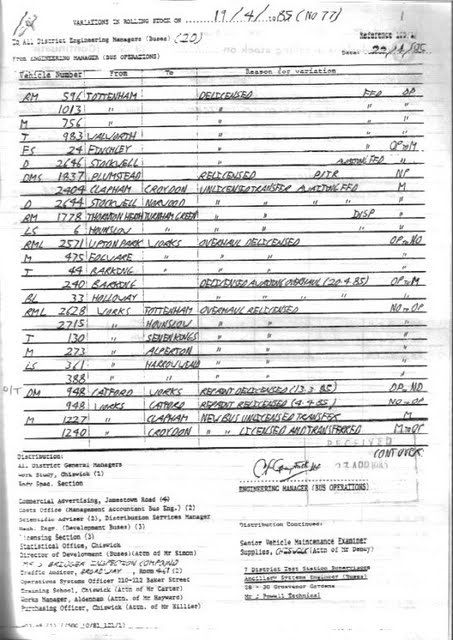 VARIATIONS IN ROLLING STOCK ON 19/4/1985 (No 77)
To All District Engineering Managers (Buses) (20)
Reference
FROM ENGINEERING MANAGER (BUS OPERATIONS)
Date: 22/4/85
Vehicle Number From To Reason for variation
RM 596 TOTTENHAM DELICENSED FFD OP
1013 " " " "
M 756 " " " "
T 983 WALWORTH " " "
FS 24 FINCHLEY " " OP to M
D 2646 STOCKWELL " AWAITING FFD "
DMS 1837 PLUMSTEAD RELICENSED NP
2404 CLAPHAM CROYDON UNLICENSED TRANSFER AWAITING FFD M
D 2644 STOCKWELL NORWOOD " " " "
RM 1778 THORNTON HEATH TURNHAM GREEN " " DISP "
LS 6 HOUNSLOW " " " " "
RML 2571 UPTON PARK WORKS OVERHAUL DELICENSED OP to NO
M 475 EDGWARE " " " "
T 44 BARKING " " " "
240 BARKING DELICENSED AWAITING OVERHAUL (20.4.85) OP to M
BL 33 HOLLOWAY " " " " "
RML 2628 WORKS TOTTENHAM OVERHAUL RELICENSED NO to OP
2715 " HOUNSLOW " " "
T 130 " SEVEN KINGS " " "
M 273 " ALPERTON " " "
LS 361 " HARROW WEALD " " "
388 " " " " "
O/T DM 948 CATFORD WORKS REPAINT DELICENSED (13.3.85) OP to NO
948 WORKS CATFORD REPAINT RELICENSED (4.4.85) NO to OP
M 1227 " CLAPHAM NEW BUS UNLICENSED TRANSFER M
1240 " CROYDON " " LICENSED AND TRANSFERRED M to OP
RECEIVED
CONT OVER
Distribution:
All District General Managers
Work Study, Chiswick (1)
Body Spec. Section
ENGINEERING MANAGER (BUS OPERATIONS)
Commercial Advertising, Jamestown Road (4)
Costs Office (Management Accountant Bus Eng.) (2)
Scientific Adviser (2), Distribution Services Manager
Mech. Engr. (Development Buses) (3)
Licensing Section (3)
Statistical Office, Chiswick
Director of Development (Buses)(Attn of Mr Simon)
INSPECTION COMPOUND
Traffic Auditor, BROADWAY, Room
Operations Systems Officer 210-212 Baker Street
Training School, Chiswick (Attn of Mr Carter)
Works Manager, Aldenham (Attn. of Mr Hayward)
Purchasing Officer, Chiswick (Attn of Mr Hillier)
Distribution Continues:
Senior Vehicle Maintenance Examiner
Supplies, CHISWICK (Attn of Mr Denoy)
7 District Test Station Supervisors
Ancillary Systems Engineer (Buses)
18 - 20 Grosvenor Gardens
Mr J Powell Technical